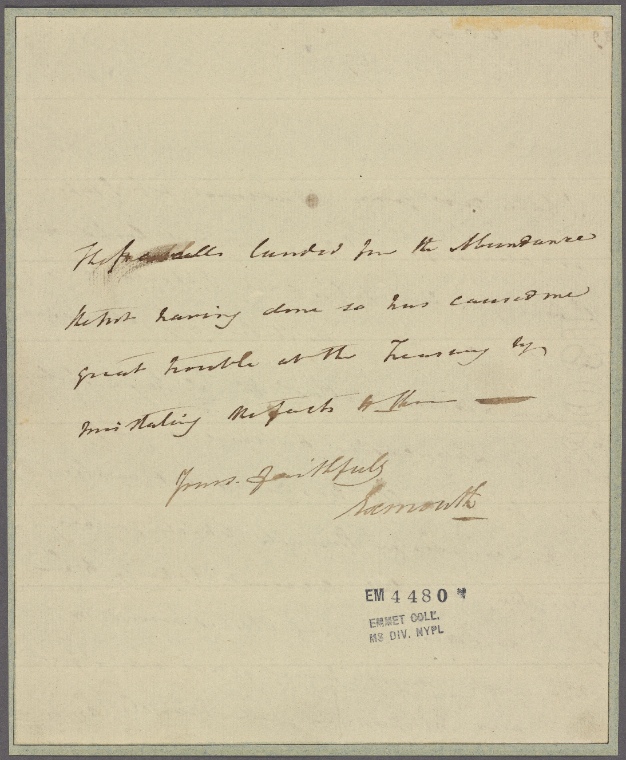 landed from the Abundance
the not having done so has caused me
great trouble at the Treasury by
misstating the facts to them —
Yours faithfully
Exmouth
EM 4480
EMMET COLL.
MS DIV. NYPL